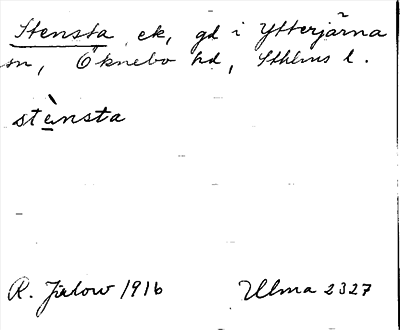 Stensta ek, gd i Ytterjärna
sn, Öknebo hd, Sthlms l.
stènsta
R. Jirlow 1916 Ulma 2327